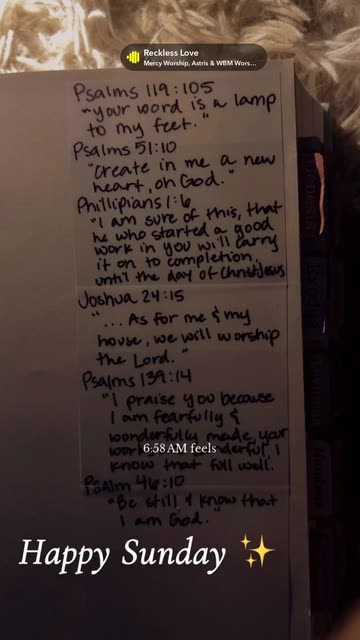 Reckless Love
Mercy Worship, Astris & WBM Wors...
Psalms 119:105
"your word is a lamp
to my feet."
Psalms 51:10
"Create in me a new
heart, oh God."
Phillipians 1:6
"I am sure of this, that
he who started a good
work in you will carry
it on to completion,
until the day of Christ Jesus
Joshua 24:15
"... As for me & my
house, we will worship
the Lord."
Psalms 139:14
"I praise you because
I am fearfully &
wonderfully made, your
6:58 AM feels
know that full well.
Psalm 46:10
"Be still & know that
I am God."
Happy Sunday ✨